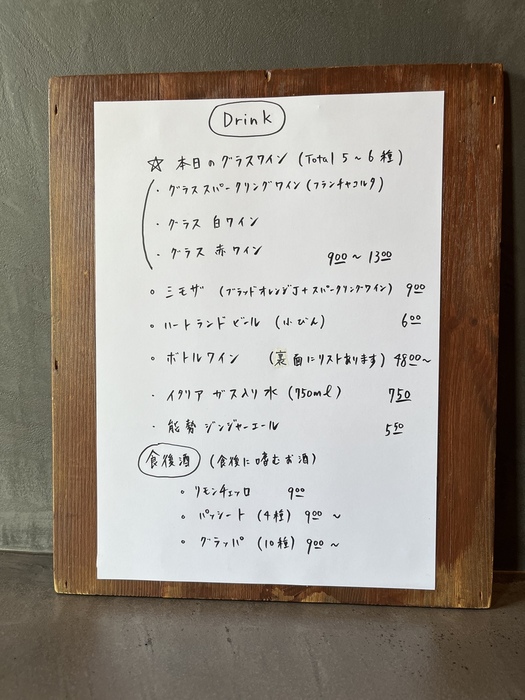 Drink
☆ 本日のグラスワイン (Total 5～6種)
・グラススパークリングワイン (フランチャコルタ)
・グラス 白ワイン
・グラス 赤ワイン 900～1300
○ ミモザ (ブラッドオレンジJ+スパークリングワイン) 900
○ ハートランドビール (小びん) 600
○ ボトルワイン (裏面にリストあります) 4800～
・イタリア ガス入り水 (750ml) 750
・能勢 ジンジャーエール 550
食後酒 (食後に嗜むお酒)
○ リモンチェッロ 900
○ パッシート (4種) 900～
○ グラッパ (10種) 900～